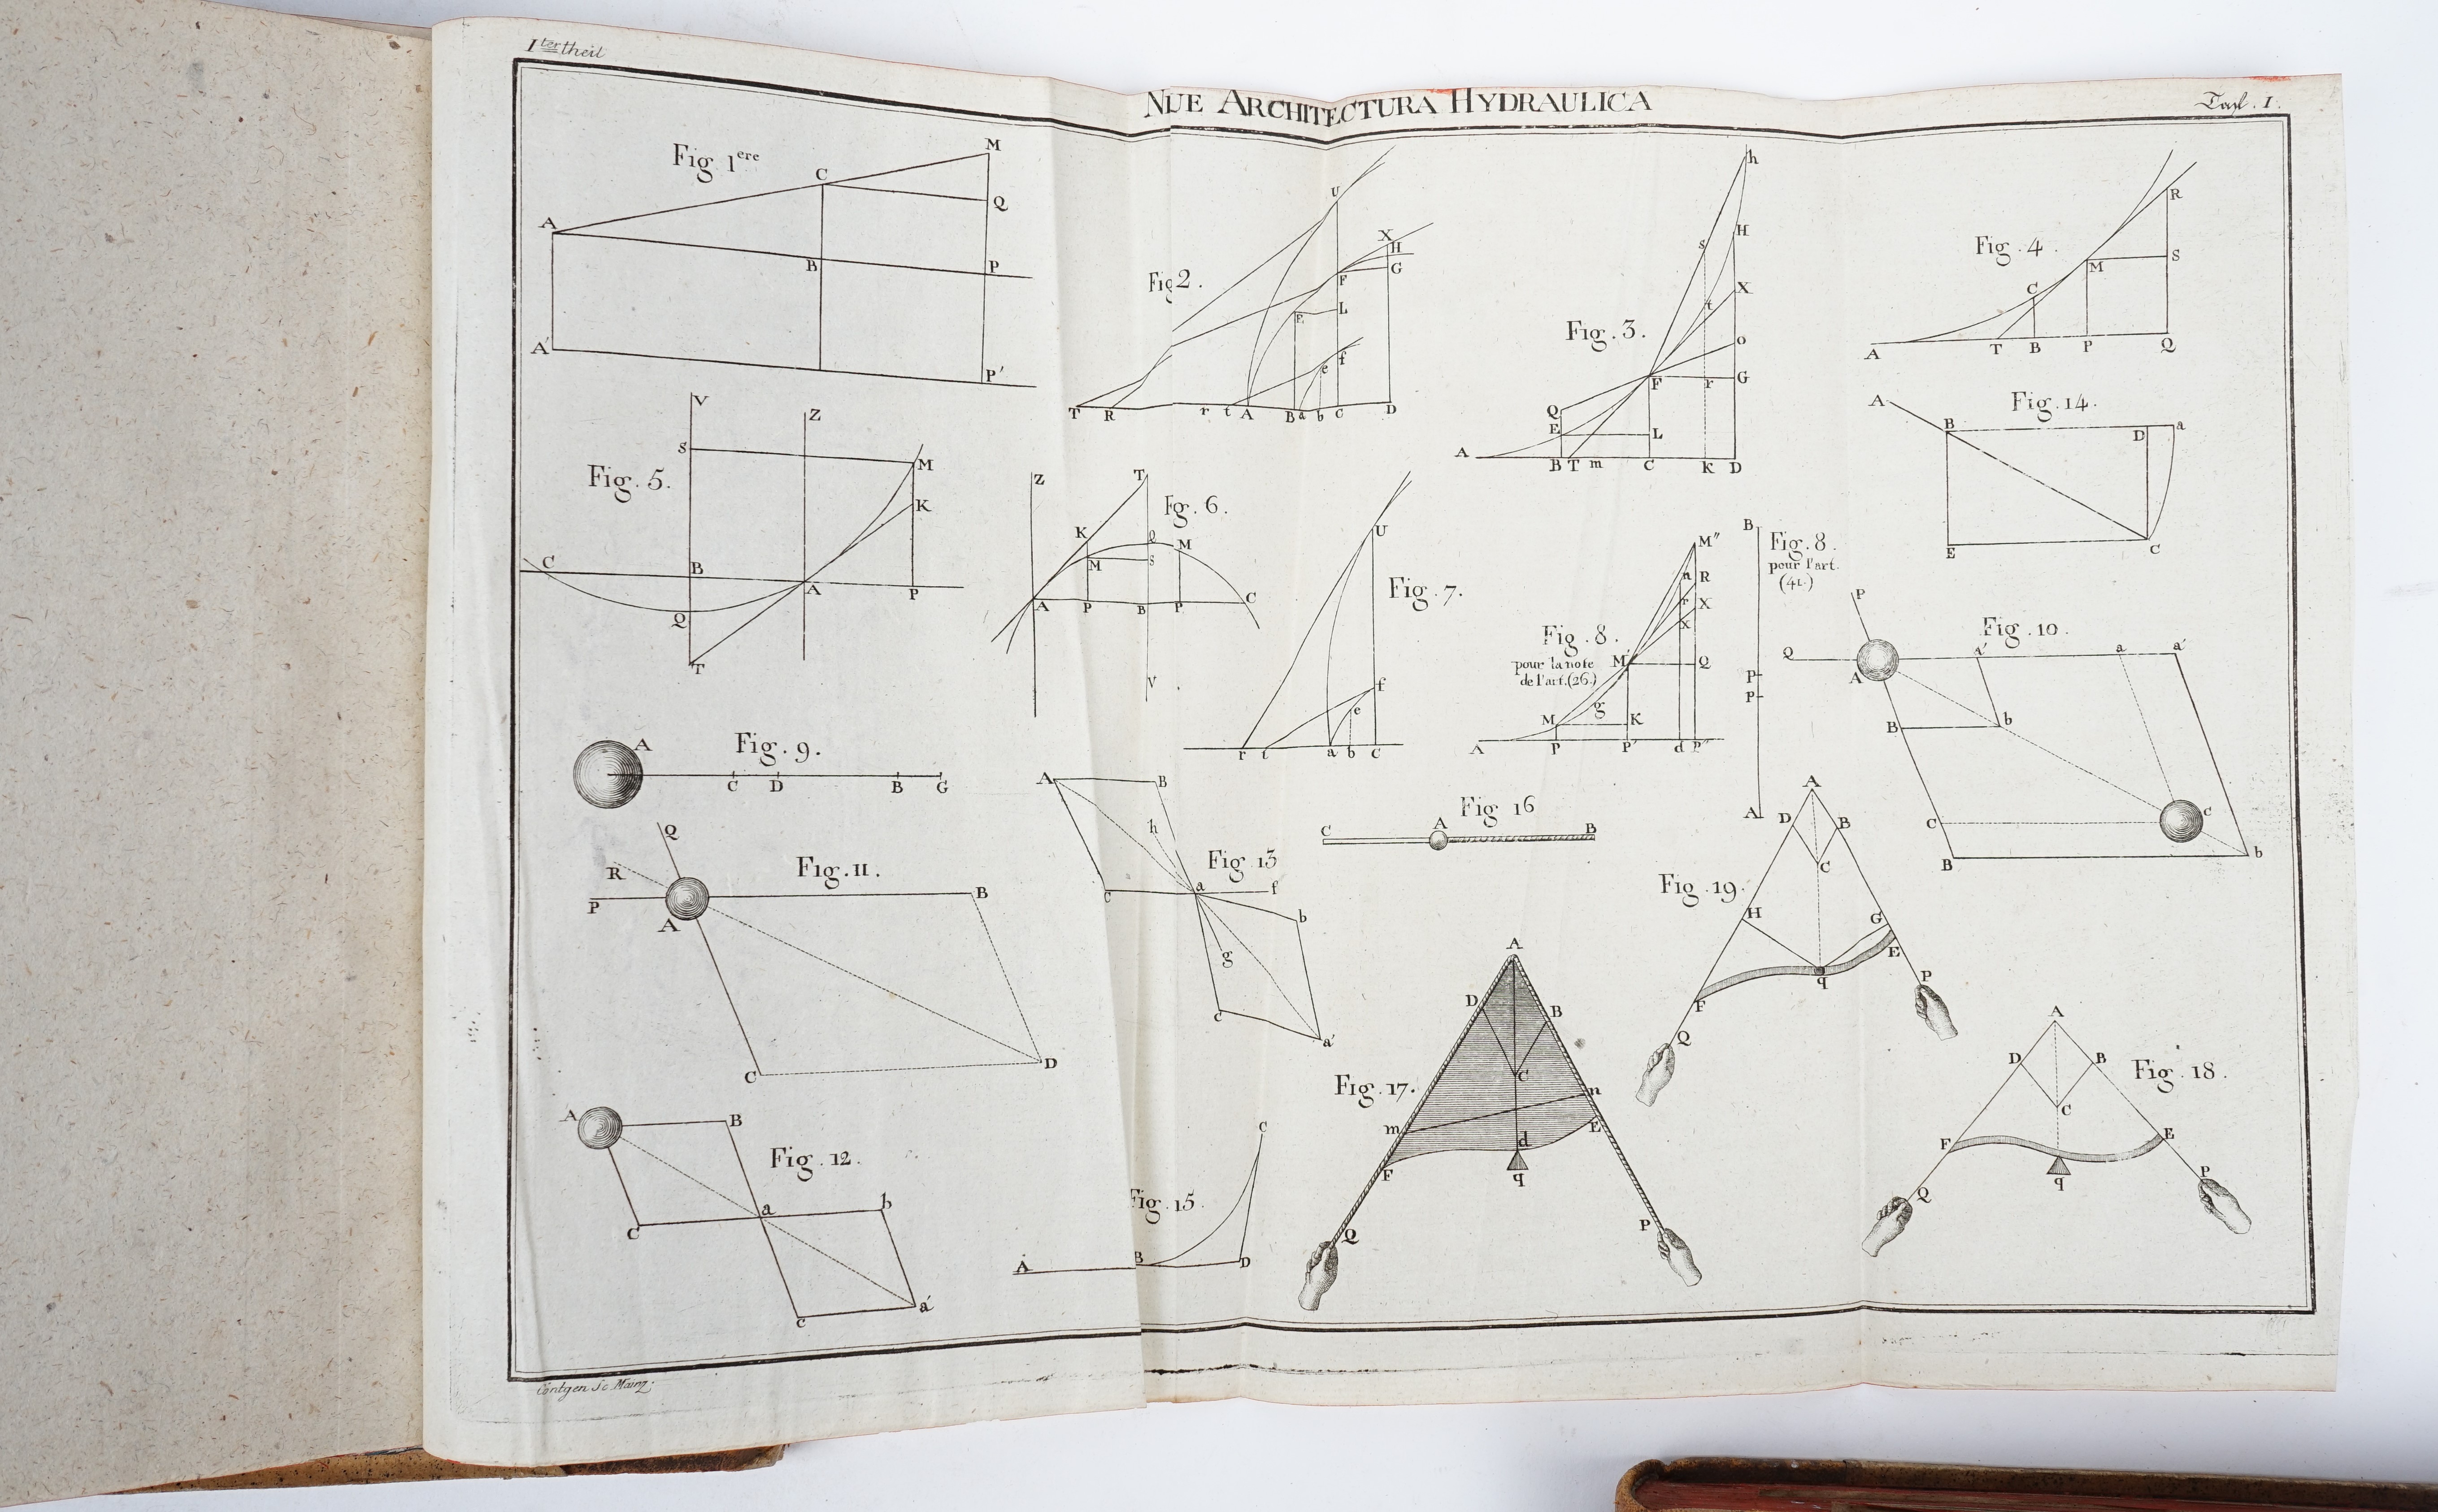 I^ter theil
NUE ARCHITECTURA HYDRAULICA
Tafl. I.
Fig 1^ere
A
C
M
Q
B
P
A'
P'
Fig 2.
U
X
H
F
G
E
L
f
e
T R r t A B a b C D
Fig. 3.
h
s
H
X
t
o
F r G
Q
E L
A B T m C K D
Fig. 4.
R
M S
C
A T B P Q
Fig. 5.
V
Z
S
M
K
C B A P
Q
T
Fig. 6.
Z
T
K
M
S
M
A P B P C
V
Fig. 7.
U
f
e
r t a b C
Fig. 8.
pour la note
de l'art. (26.)
M''
n R
r X
x
M' Q
M g K
A P P' d P''
Fig. 8.
pour l'art.
(41.)
B
P
P
A
Fig. 14.
A
B D a
E C
Fig. 9.
A
C D B G
Fig. 10.
P
Q A a' a a'
B b
C c
B b
Fig. 11.
Q
R
P
A B
C D
Fig. 13
A B
h
C a f
b
g
c
a'
Fig 16
C A B
Fig. 19.
A
D B
C
H G
E
F q P
Q
Fig. 17.
A
D B
C
m n
E
d
F q
Q P
Fig. 18.
A
D B
C
F E
q P
Q
Fig. 12.
A B
C a b
c a'
Fig. 15.
C
A B D
Cöntgen Sc Mainz.